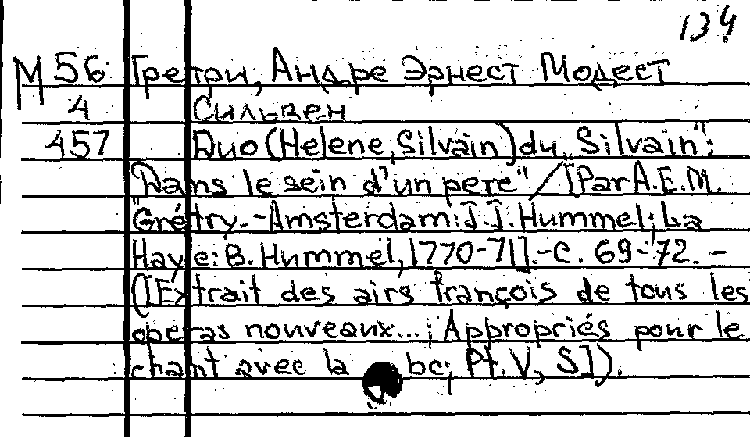 134
М 56 Гретри, Андре Эрнест Модест
4 Сильвен
457 Duo (Helene, Silvain) du "Silvain":
"Dans le sein d'un pere" / [Par A.E.M.
Grétry. - Amsterdam: J.J. Hummel; La
Haye: B. Hummel, 1770-71]. - C. 69-72. -
([Extrait des airs françois de tous les
operas nouveaux...; Appropriés pour le
chant avec la bc; Pt. V, S]).